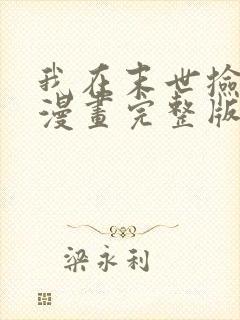 我在末世撿
漫畫完整版
梁永利